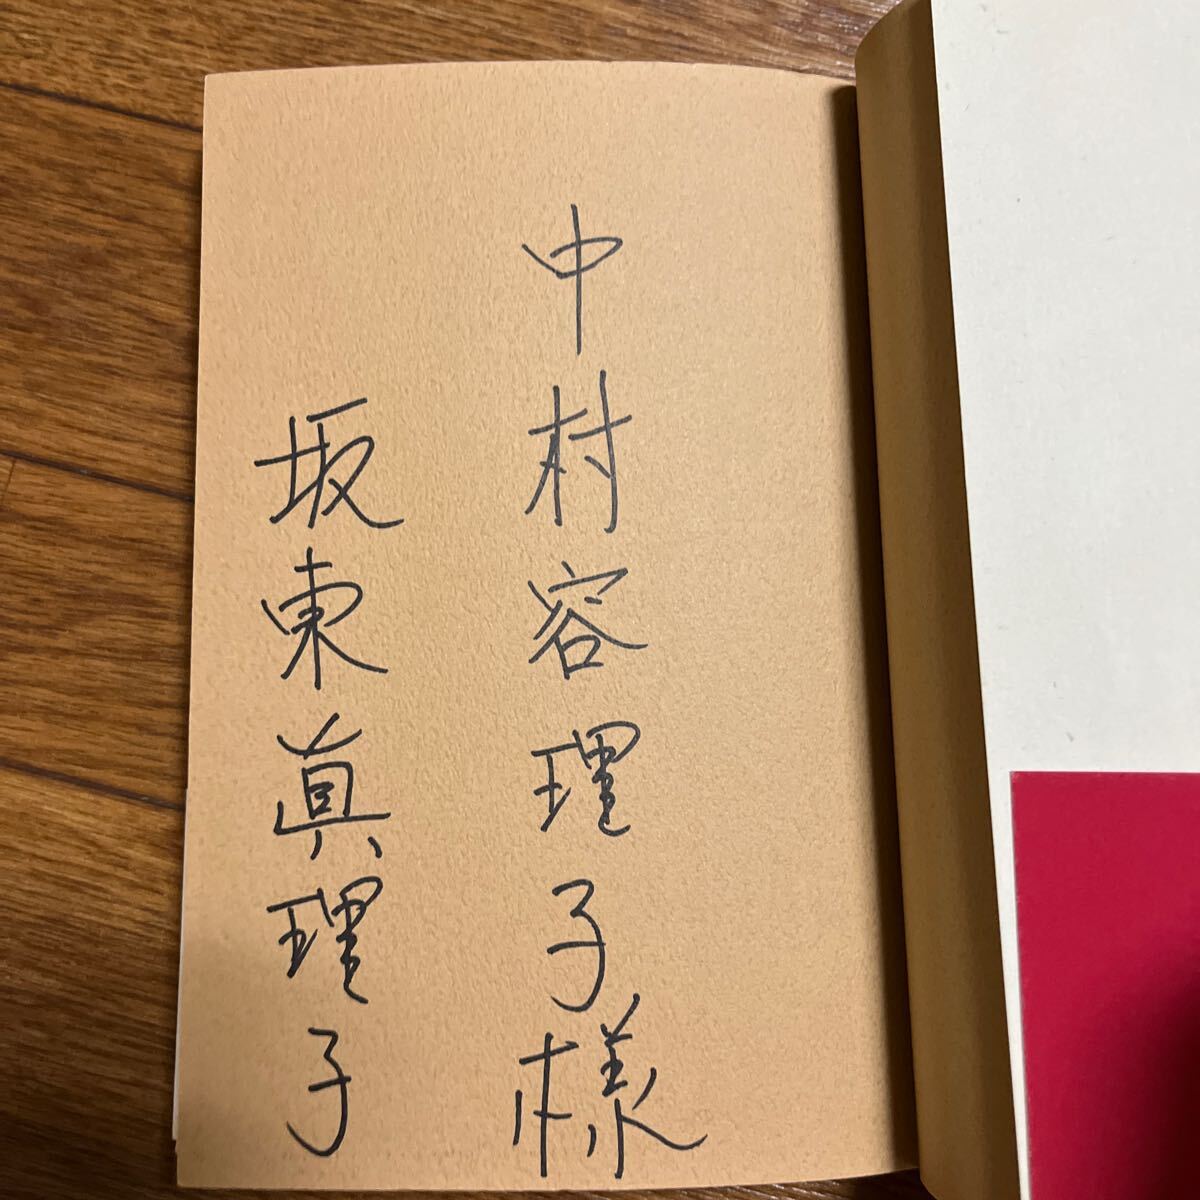 中村容理子様
坂東眞理子